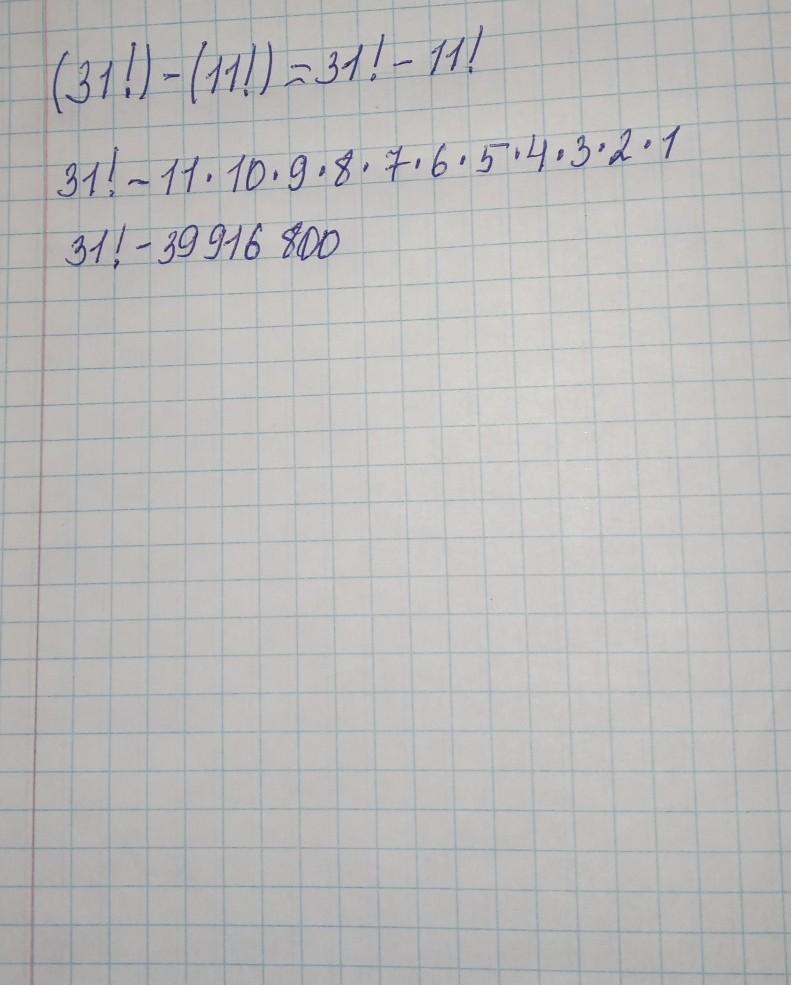 (31!)-(11!)=31!-11!
31!-11·10·9·8·7·6·5·4·3·2·1
31!-39916 800